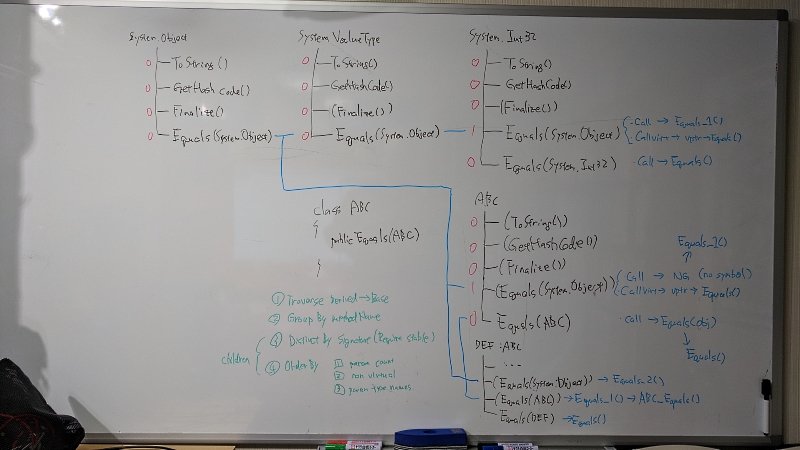 System.Object
0 ToString()
0 GetHashCode()
0 Finalize()
0 Equals(System.Object)
System.ValueType
0 ToString()
0 GetHashCode()
0 (Finalize())
0 Equals(System.Object)
System.Int32
0 ToString()
0 GetHashCode()
0 (Finalize())
1 Equals(System.Object) ・Call → Equals_1()
・Callvirt → vptr → Equals()
0 Equals(System.Int32) ・Call → Equals()
class ABC
{
public Equals(ABC)
}
① Traverse derived → Base
② Group By method Name
children
③ Distinct by Signature (Require stable)
④ Order By
① param count
② non virtual
③ param type names
ABC
0 (ToString())
0 (GetHashCode())
0 (Finalize())
Equals_1()
1 (Equals(System.Object)) ・Call → NG (no symbol)
・Callvirt → vptr → Equals()
0 Equals(ABC) ・call → Equals(obj)
Equals()
DEF : ABC
・・・
(Equals(System.Object)) → Equals_2()
(Equals(ABC)) → Equals_1() → ABC_Equals()
Equals(DEF) → Equals()